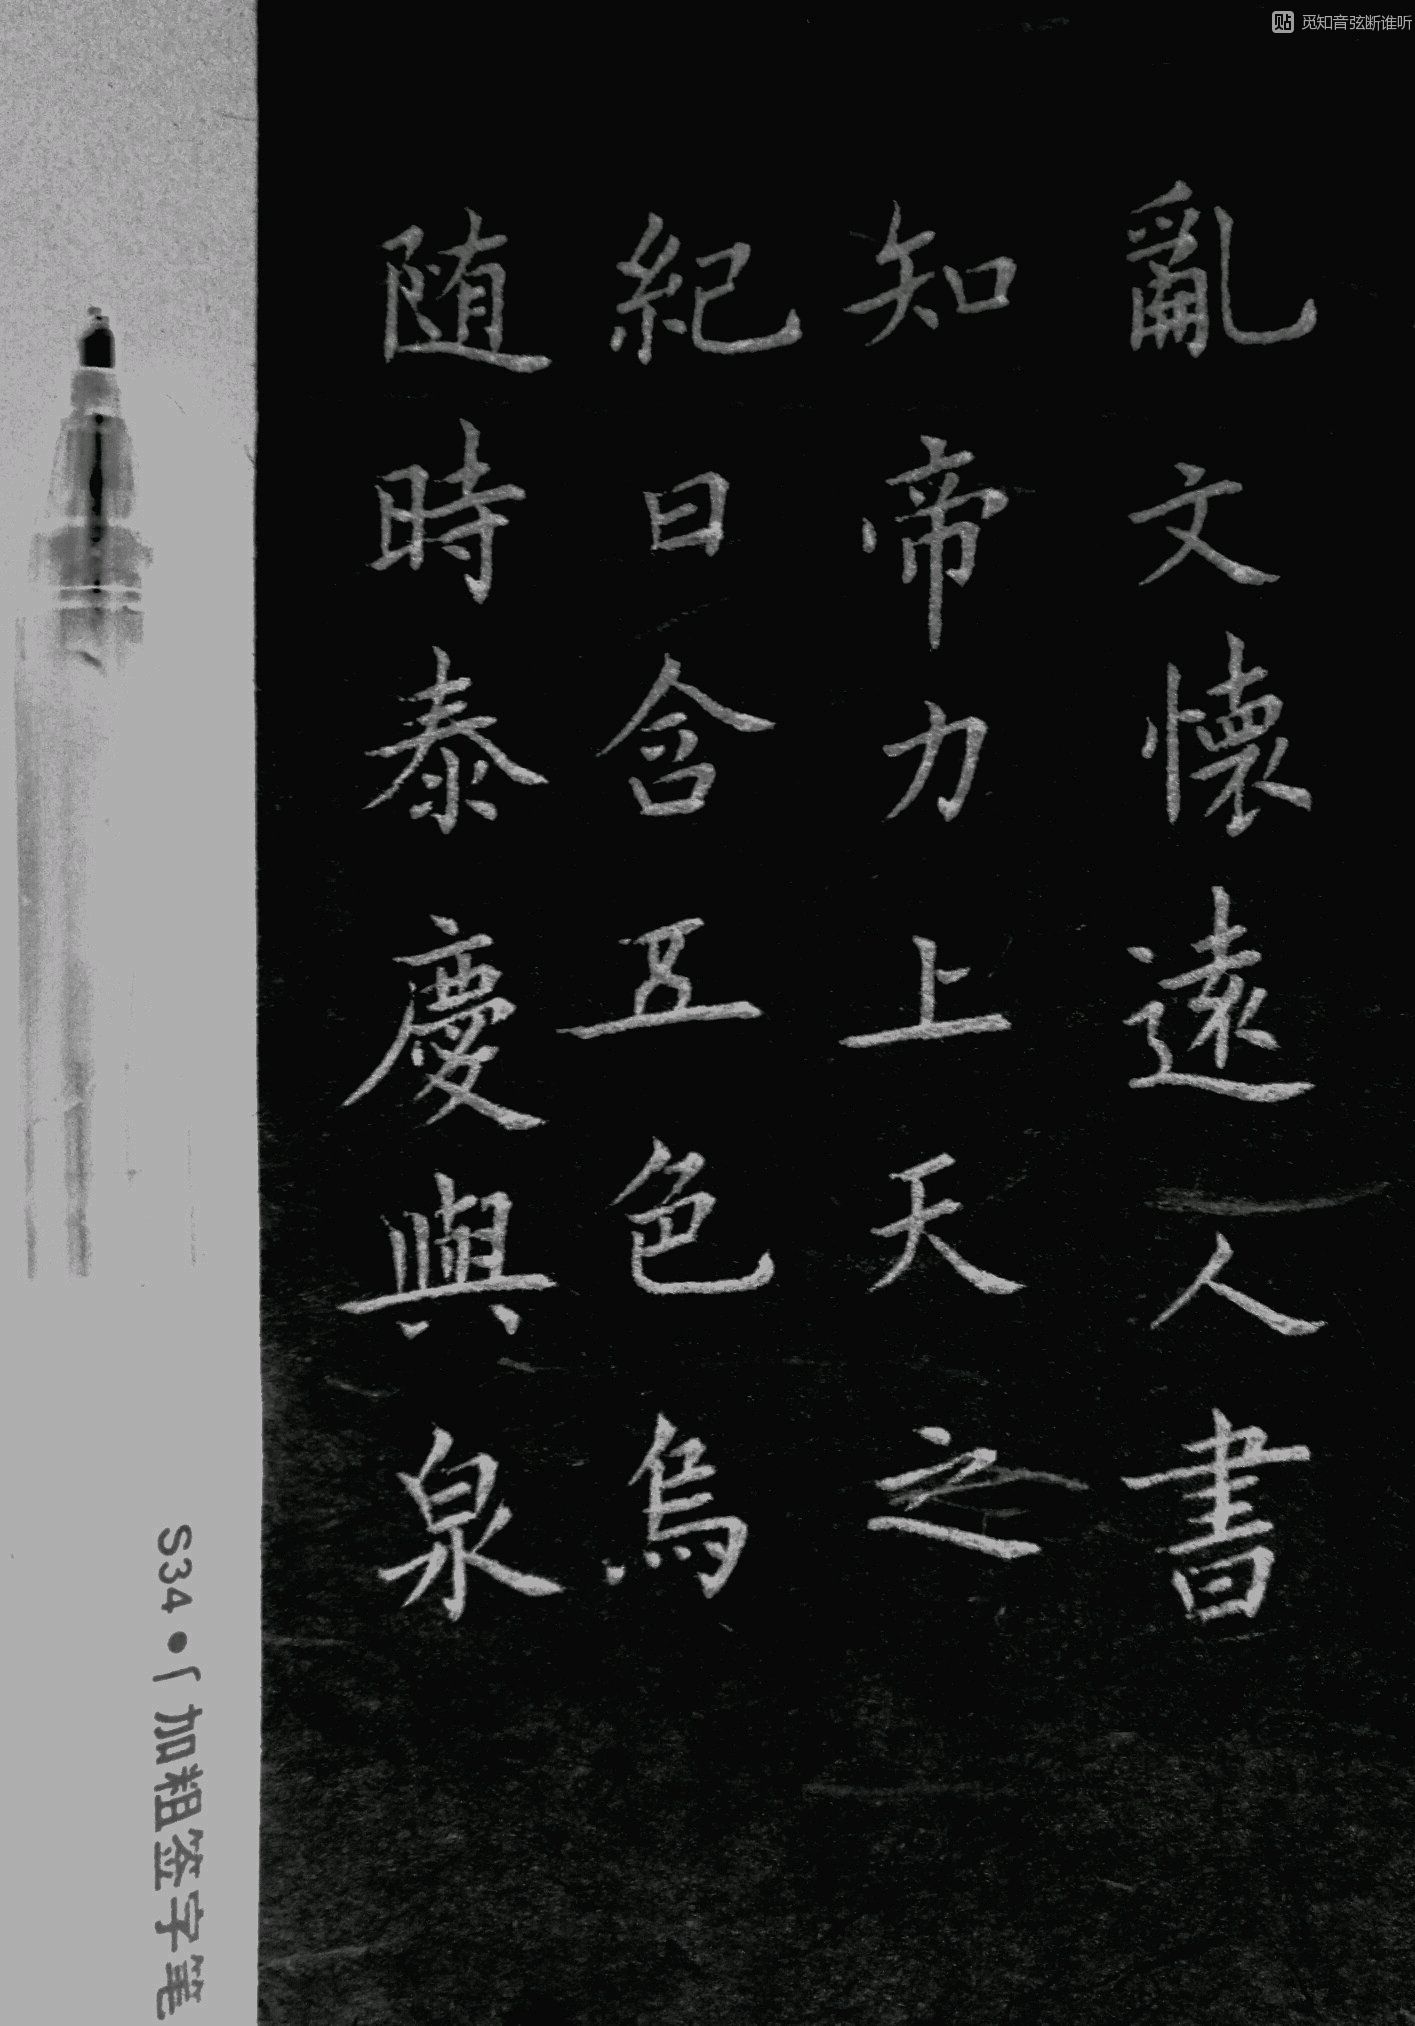 亂文懷遠人書
知帝力上天之
紀日含五色烏
随時泰慶與泉
S34•「加粗签字笔
贴 觅知音弦断谁听